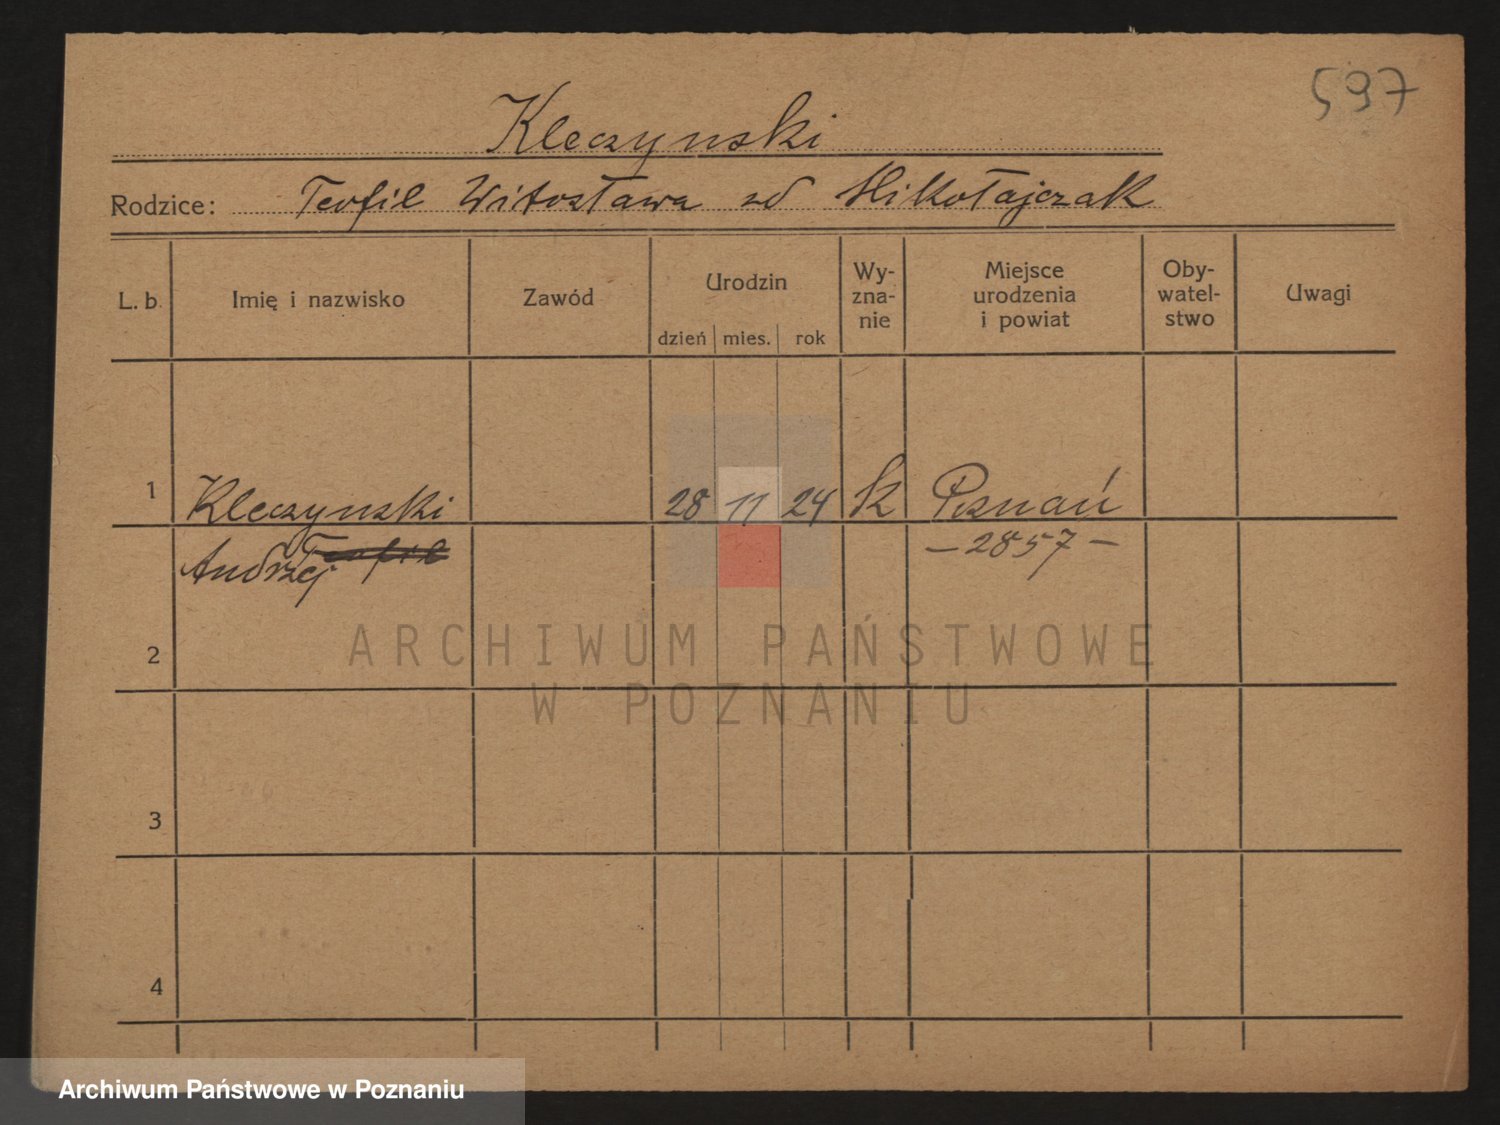 597
Kleczynski
Rodzice: Teofil Witosława zd Mikołajczak
L. b. Imię i nazwisko Zawód Urodzin dzień mies. rok Wy-zna-nie Miejsce urodzenia i powiat Oby-watel-stwo Uwagi
1 Kleczynski 28 11 24 k Poznań
Andrzej Teofil – 2857 –
2
ARCHIWUM PAŃSTWOWE
W POZNANIU
3
4
Archiwum Państwowe w Poznaniu